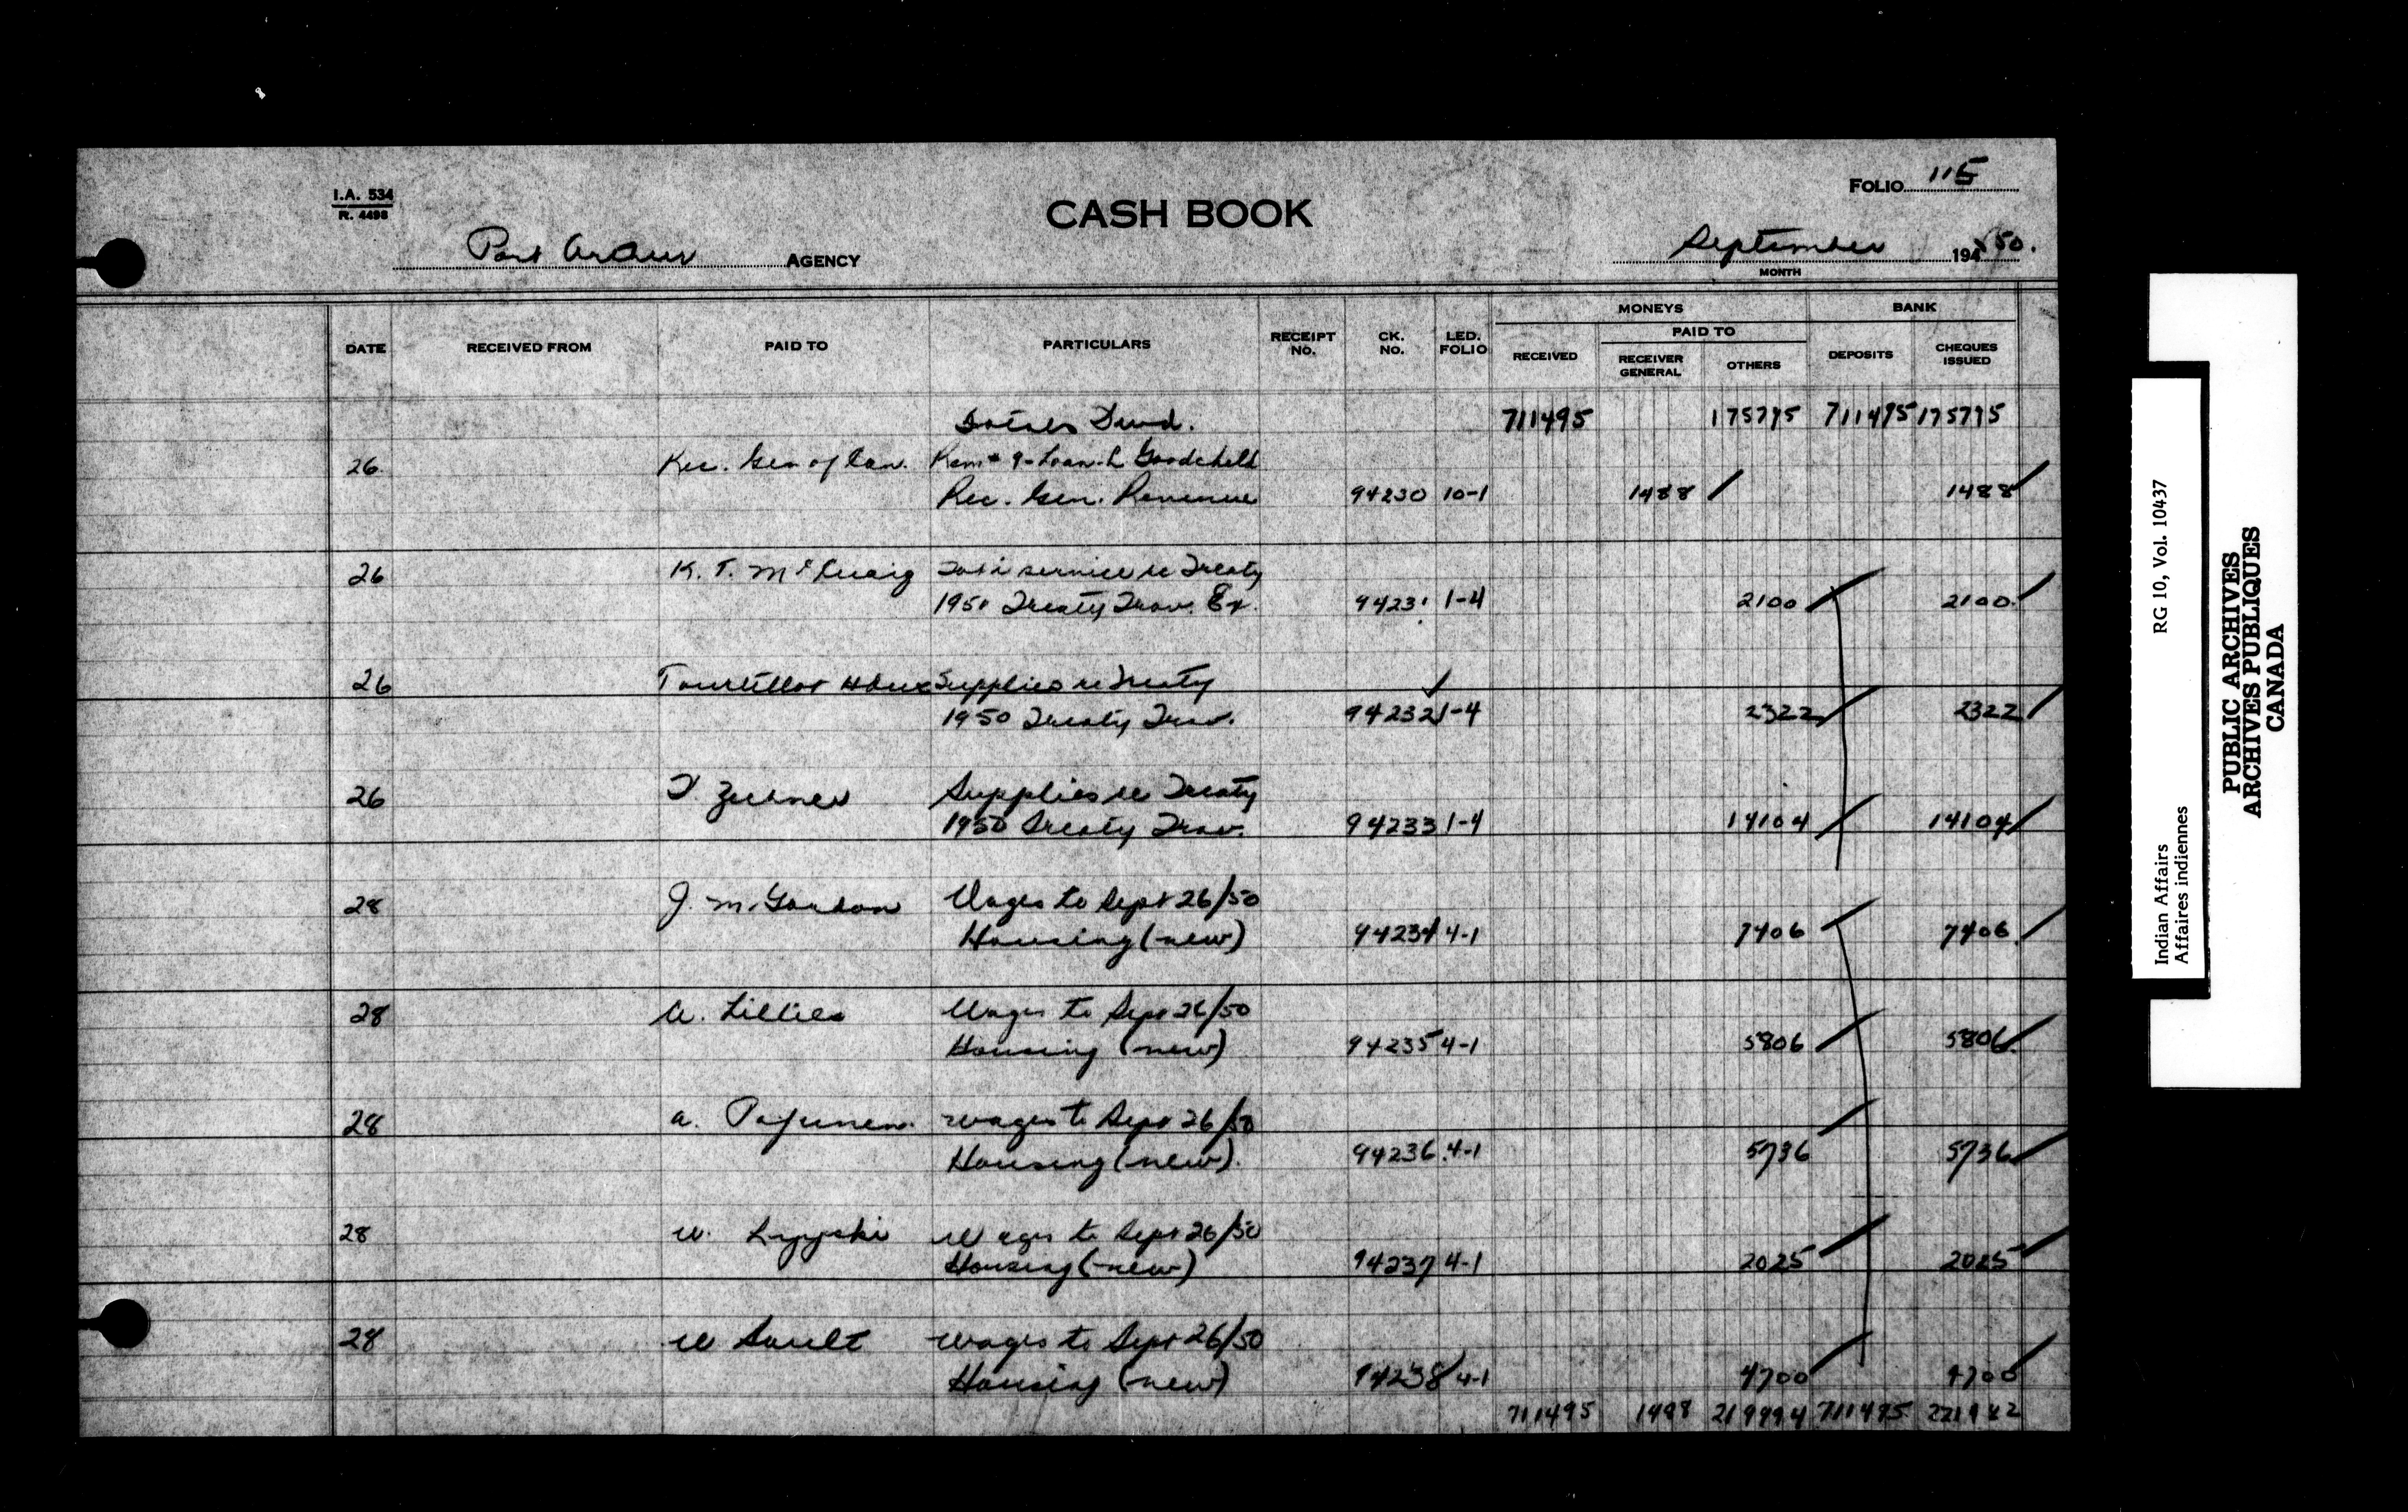 I.A. 534
R. 4498
CASH BOOK
FOLIO 115
Port Arthur AGENCY
September 194 50.
MONTH
DATE RECEIVED FROM PAID TO PARTICULARS RECEIPT No. CK. No. LED. FOLIO MONEYS RECEIVED PAID TO RECEIVER GENERAL OTHERS BANK DEPOSITS CHEQUES ISSUED
Totals Fwd. 711495 175795 711495 175795
26. Rec. Gen of Can. Rem # 9-Loan-L Goodchild
Rec. Gen. Revenue 94230 10-1 1488 1488
26 K. T. McCuaig Taxi service re Treaty
1950 Treaty Trav. Ex. 94231 1-4 2100 2100
26 Supplies re Treaty
1950 Treaty Trav. 94232 1-4 2322 2322
26 Supplies re Treaty
1950 Treaty Trav. 94233 1-4 14104 14104
28 J. McGordon Wages to Sept 26/50
Housing (new) 94234 4-1 7406 7406
28 W. Lillies Wages to Sept 26/50
Housing (new) 94235 4-1 5806 5806
28 a. Pajunen. Wages to Sept 26/50
Housing (new). 94236 4-1 5736 5736
28 W. Wages to Sept 26/50
Housing (new) 94237 4-1 2025 2025
28 W Sault Wages to Sept 26/50
Housing (new) 94238 4-1 4700 4700
711495 1488 219994 711495 221482
Indian Affairs RG 10, Vol. 10437
Affaires indiennes
PUBLIC ARCHIVES
ARCHIVES PUBLIQUES
CANADA